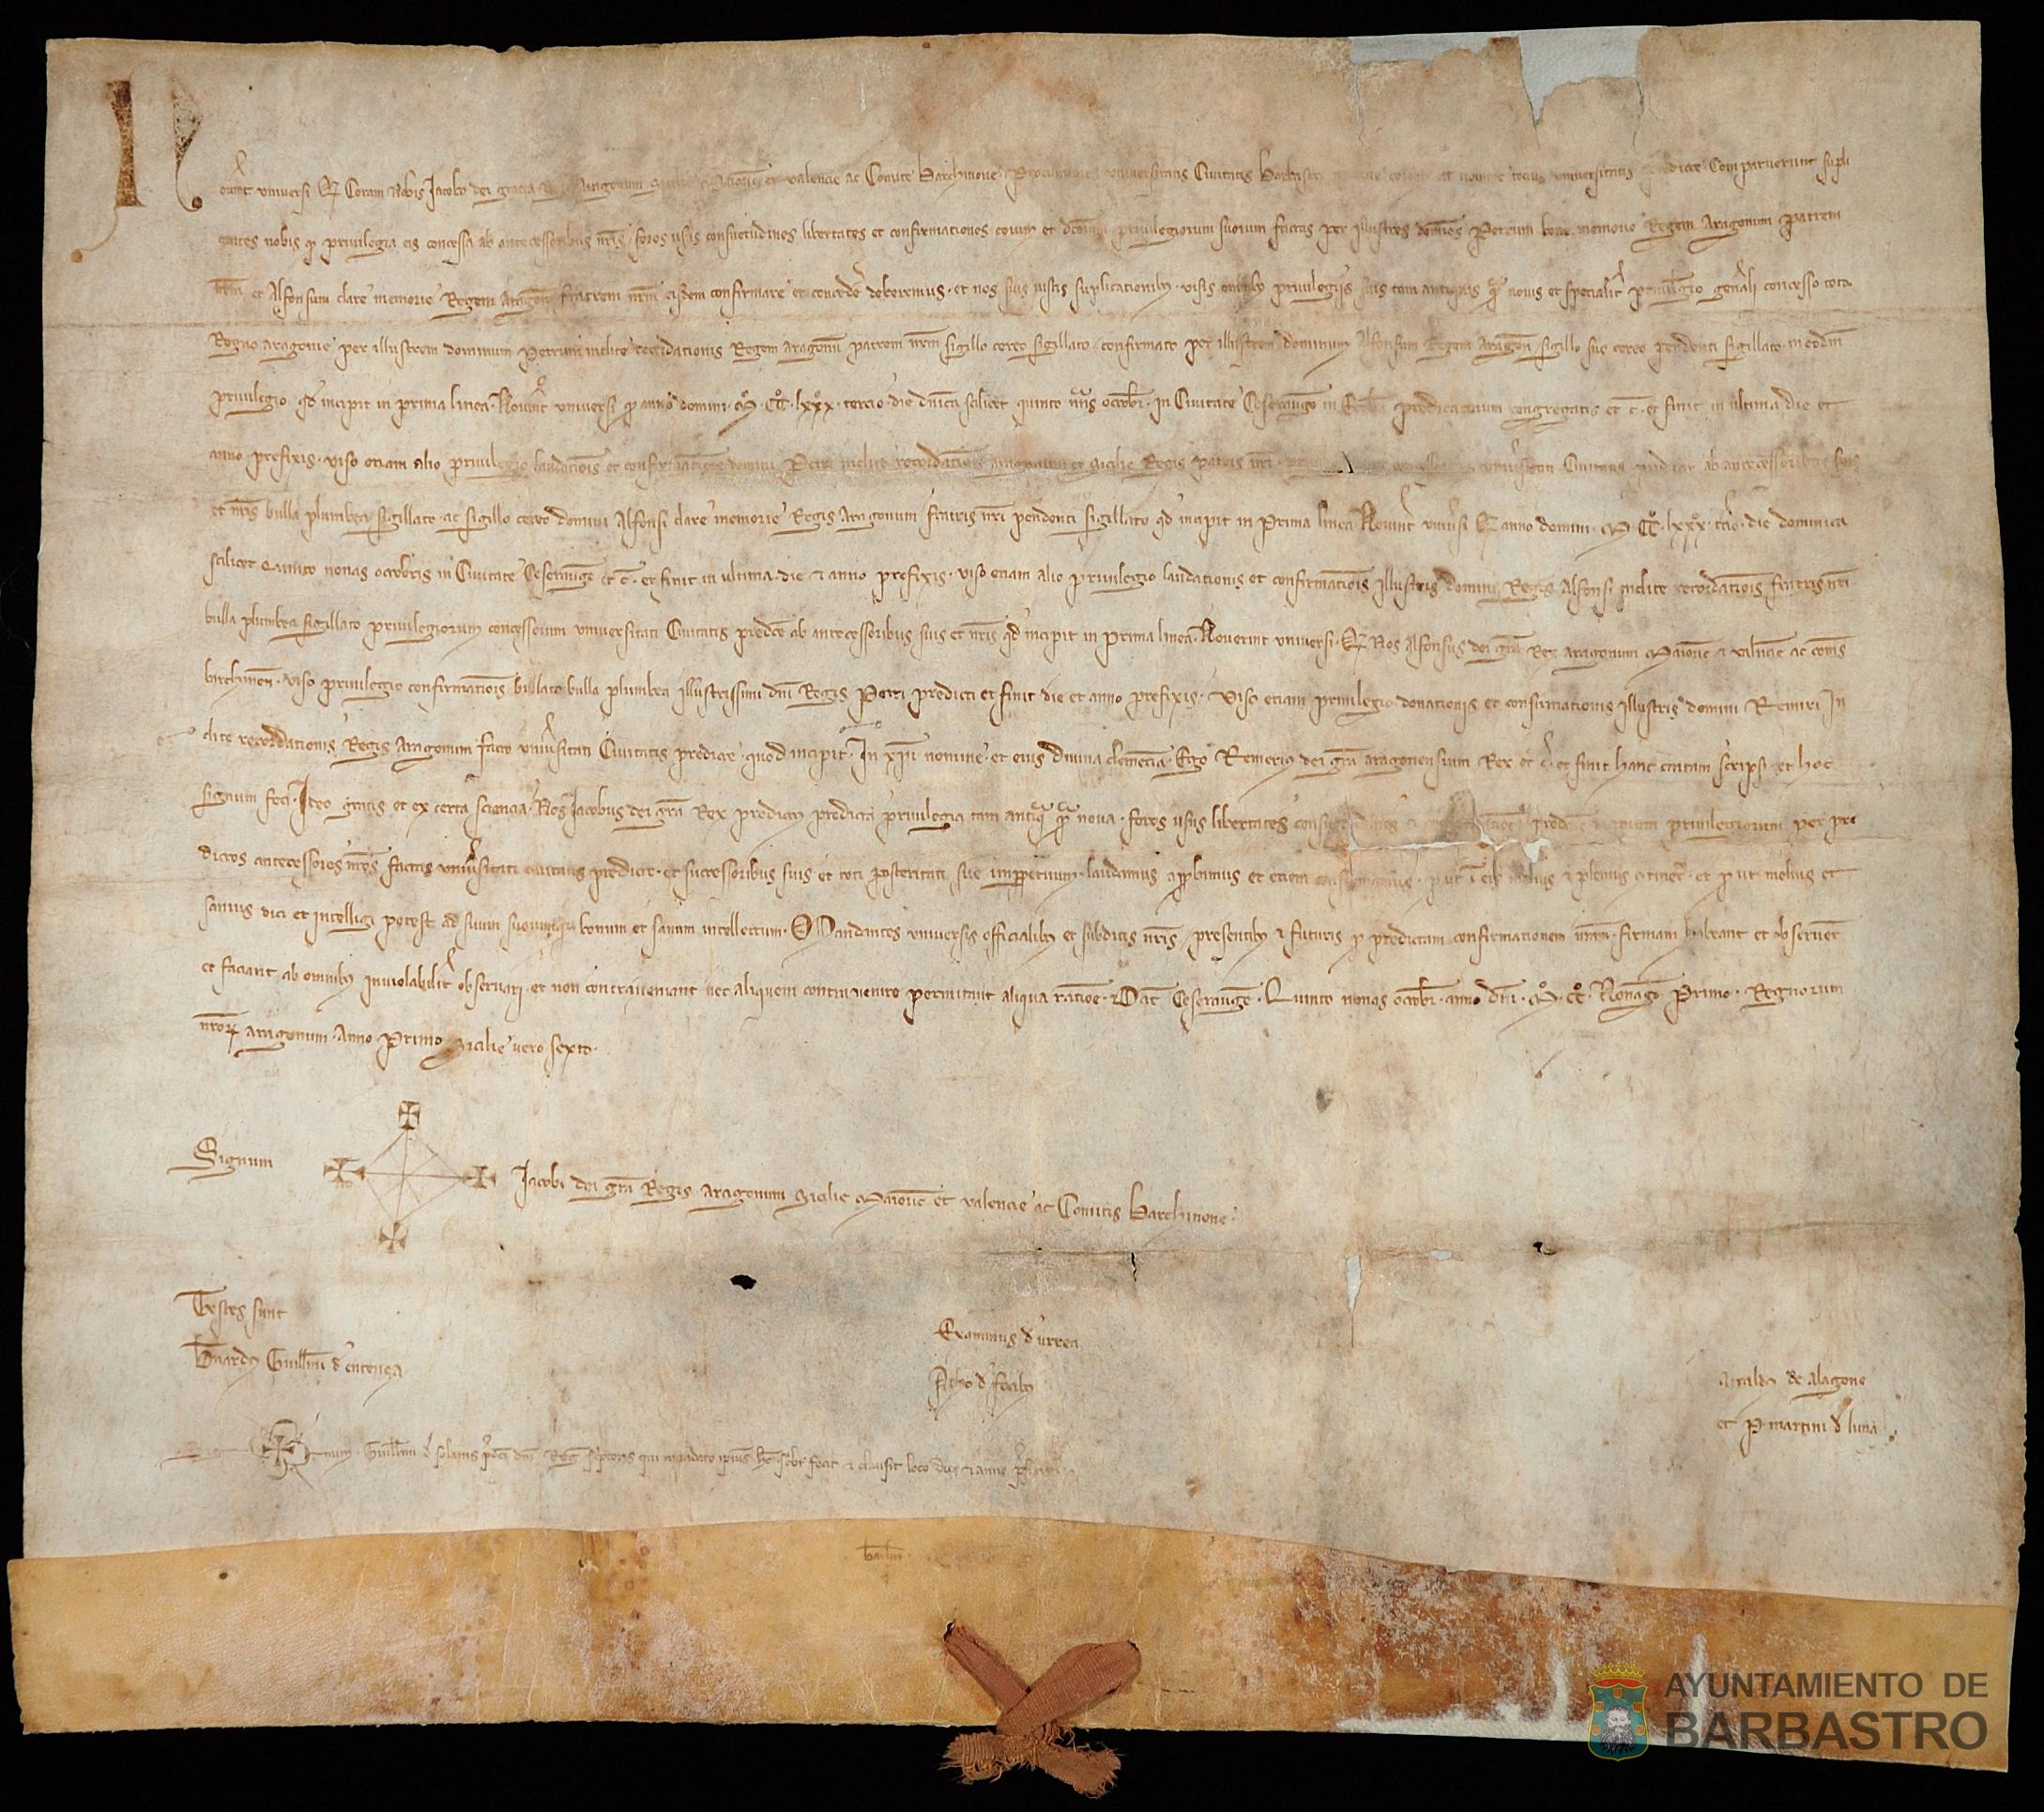 Nouint universi Q Coram Nobis Jacobo dei gracia Rege Aragonum Sicilie Maioric et valencie ac Comite Barchinone universitatis Civitatis Barbastri ac nomine tocius universitatis predicte Comparuerunt supli
cantes nobis q privilegia eis concessa ab antecessoribus nris foros usus consuetudines libertates et confirmationes eorum et privilegiorum suorum factas per illustres domnos Petrum bone memorie Regem Aragonum patrem
nrm et Alfonsum clare memorie Regem Aragon fratrem nrm eisdem confirmare et concede deberemus et nos suis iustis suplicationib visis omnib privilegijs suis tam antiquis q novis et specialit privilegio genali concesso toti
Regno aragonie per illustrem dominum Petrum inclite recordationis Regem aragonu patrem nrm sigillo cereo sigillato confirmato per illustrem dominum Alfonsum Regem Aragon sigillo suo cereo pendenti sigillato in eodm
privilegio qd incipit in prima linea Nouint universi q anno domini M CC lxxx tercio die dnica scilicet quinto nns octobr In Civitate Cesaraug in predicatorum congregatis et c et finit in ultima die et
anno prefixis viso etiam alio privilegio laudationis et confirmationis domini Petri inclite recordationis aragonum et Sicilie Regis patris nri Civitatis predicte ab antecessoribus suis
et nris bulla plumbea sigillato ac sigillo cereo domini Alfonsi clare memorie Regis Aragonum fratris nri pendenti sigillato qd incipit in Prima linea Nouint univsi Q anno domini M CC lxxx tcio die dominica
scilicet Quinto nonas octobris in Civitate Cesaraug et c et finit in ultima die et anno prefixis viso etiam alio privilegio laudationis et confirmationis Illustris domini Regis Alfonsi Inclite recordationis fratris nri
bulla plumbea sigillato privilegiorum concessorum universitati Civitatis predce ab antecessoribus suis et nris qd incipit in Prima linea Noverint universi Q Nos Alfonsus dei gra Rex aragonum Maioric et valncie ac coms
barchinon viso privilegio confirmationis bullato bulla plumbea illustrissimi dni Regis Petri predicti et finit die et anno prefixis Viso etiam privilegio donationis et confirmationis Illustris domini Remiri In
clite recordationis Regis Aragonum facto univsitati Civitatis predicte quod incipit In xpi nomine et eius divina clemencia Ego Remirus dei gra aragonensium Rex et c et finit hanc cartam scripsi et hoc
signum feci Ideo gratis et ex certa sciencia Nos Jacobus dei gra Rex predictus predicta privilegia tam antiq q nova foros usus libertates privilegiorum per pre
dictos antecessores nros factas univsitati civitatis predicte et successoribus suis et toti posteritati sue imperpetuum laudamus approbamus et etiam confirmamus put i eis melius et plenius continet et put melius et
sanius dici et intelligi potest ad suum suorumque bonum et sanum intellectum Mandantes universis officialib et subditis nris presentib et futuris q predictam confirmationem nram firmam habeant et observet
et faciant ab omnib inviolabilit observari et non contraveniant nec aliquem contravenire permitant aliqua racioe Dat Cesaraugе Quinto nonas octobr anno dni M CC Nonago Primo Regnorum
nror aragonum Anno Primo Sicilie vero sexto
Signum Jacobi dei gra Regis Aragonum Sicilie Maioric et valencie ac Comitis Barchinone
Testes sunt
Bnardus Guillmi d entenca
Examinus d urrea
Petho d focibus
Artaldus de Alagone
et P martini d luna
Sig num Guillmi d solanis pdci dni Reg sciptoris qui mandato ipius hec scbi fecit et clausit loco die et anno pfixis
barbri
AYUNTAMIENTO DE
BARBASTRO